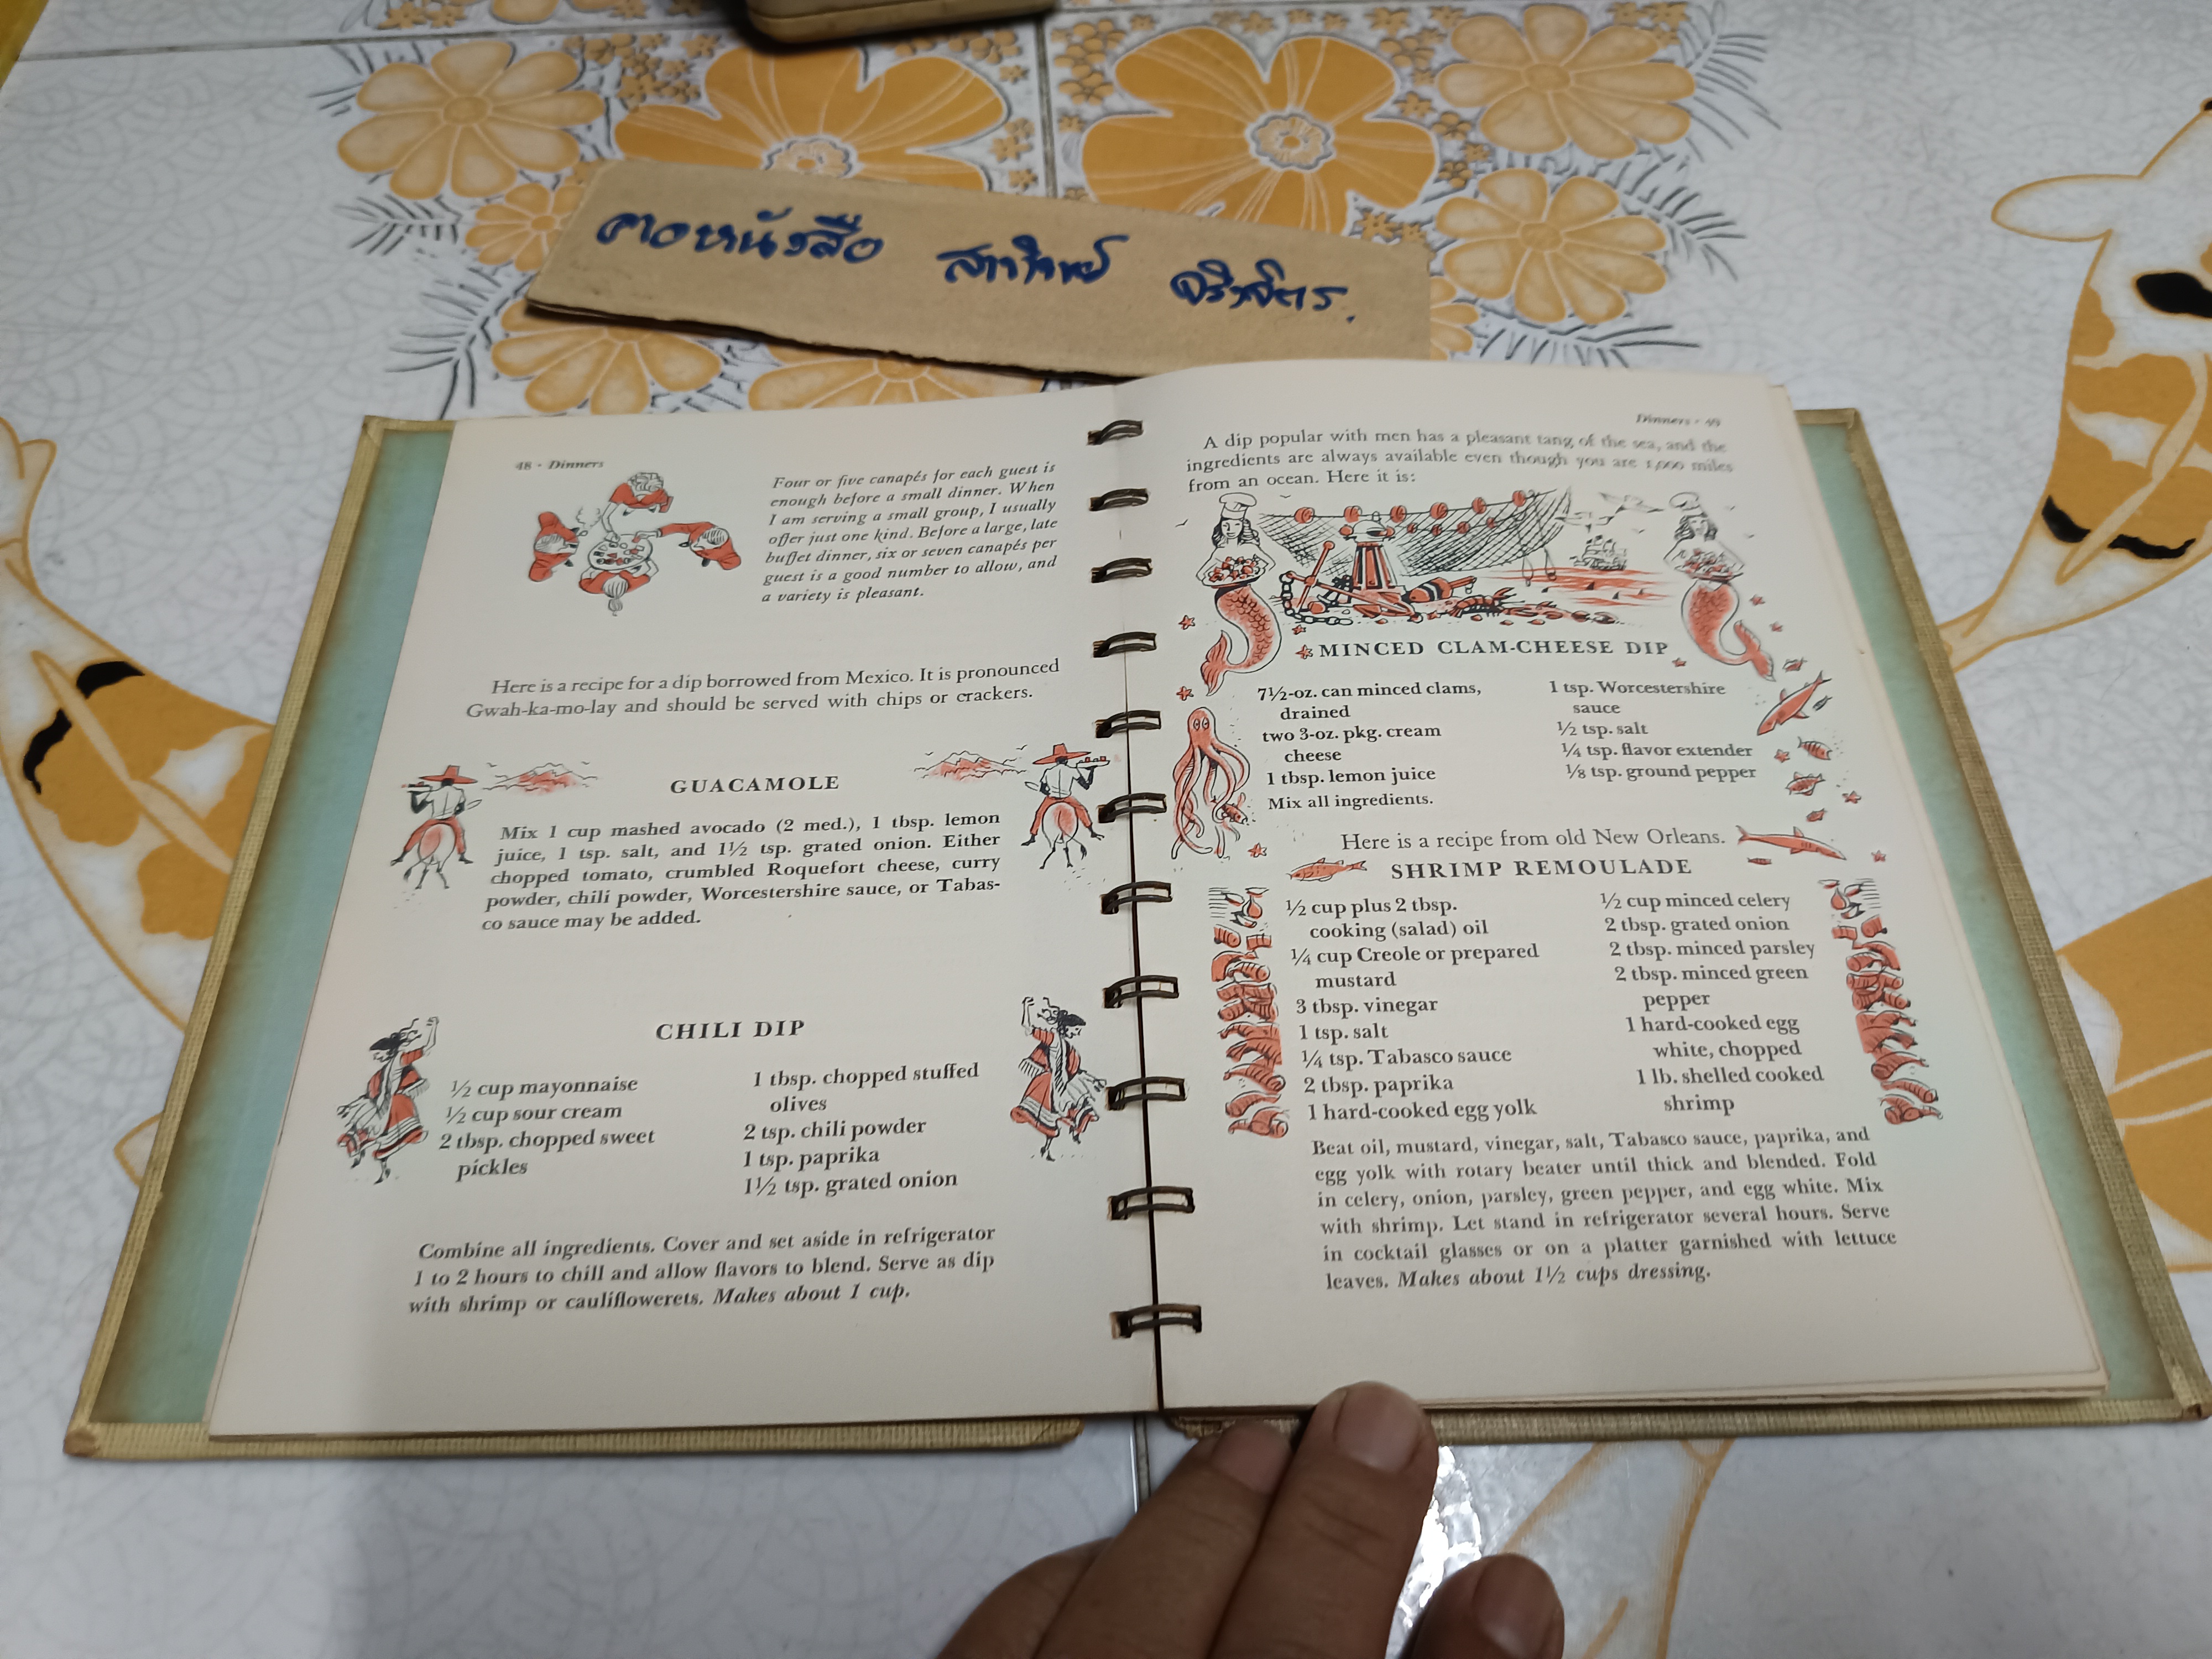 คอหนังสือ
48 · Dinners
Four or five canapés for each guest is
enough before a small dinner. When
I am serving a small group, I usually
offer just one kind. Before a large, late
buffet dinner, six or seven canapés per
guest is a good number to allow, and
a variety is pleasant.
Here is a recipe for a dip borrowed from Mexico. It is pronounced
Gwah-ka-mo-lay and should be served with chips or crackers.
GUACAMOLE
Mix 1 cup mashed avocado (2 med.), 1 tbsp. lemon
juice, 1 tsp. salt, and 1½ tsp. grated onion. Either
chopped tomato, crumbled Roquefort cheese, curry
powder, chili powder, Worcestershire sauce, or Tabas-
co sauce may be added.
CHILI DIP
½ cup mayonnaise
½ cup sour cream
2 tbsp. chopped sweet
pickles
1 tbsp. chopped stuffed
olives
2 tsp. chili powder
1 tsp. paprika
1½ tsp. grated onion
Combine all ingredients. Cover and set aside in refrigerator
1 to 2 hours to chill and allow flavors to blend. Serve as dip
with shrimp or cauliflowerets. Makes about 1 cup.
Dinners · 49
A dip popular with men has a pleasant tang of the sea, and the
ingredients are always available even though you are 1,000 miles
from an ocean. Here it is:
MINCED CLAM-CHEESE DIP
7½-oz. can minced clams,
drained
two 3-oz. pkg. cream
cheese
1 tbsp. lemon juice
Mix all ingredients.
1 tsp. Worcestershire
sauce
½ tsp. salt
¼ tsp. flavor extender
⅛ tsp. ground pepper
Here is a recipe from old New Orleans.
SHRIMP REMOULADE
½ cup plus 2 tbsp.
cooking (salad) oil
¼ cup Creole or prepared
mustard
3 tbsp. vinegar
1 tsp. salt
¼ tsp. Tabasco sauce
2 tbsp. paprika
1 hard-cooked egg yolk
½ cup minced celery
2 tbsp. grated onion
2 tbsp. minced parsley
2 tbsp. minced green
pepper
1 hard-cooked egg
white, chopped
1 lb. shelled cooked
shrimp
Beat oil, mustard, vinegar, salt, Tabasco sauce, paprika, and
egg yolk with rotary beater until thick and blended. Fold
in celery, onion, parsley, green pepper, and egg white. Mix
with shrimp. Let stand in refrigerator several hours. Serve
in cocktail glasses or on a platter garnished with lettuce
leaves. Makes about 1½ cups dressing.